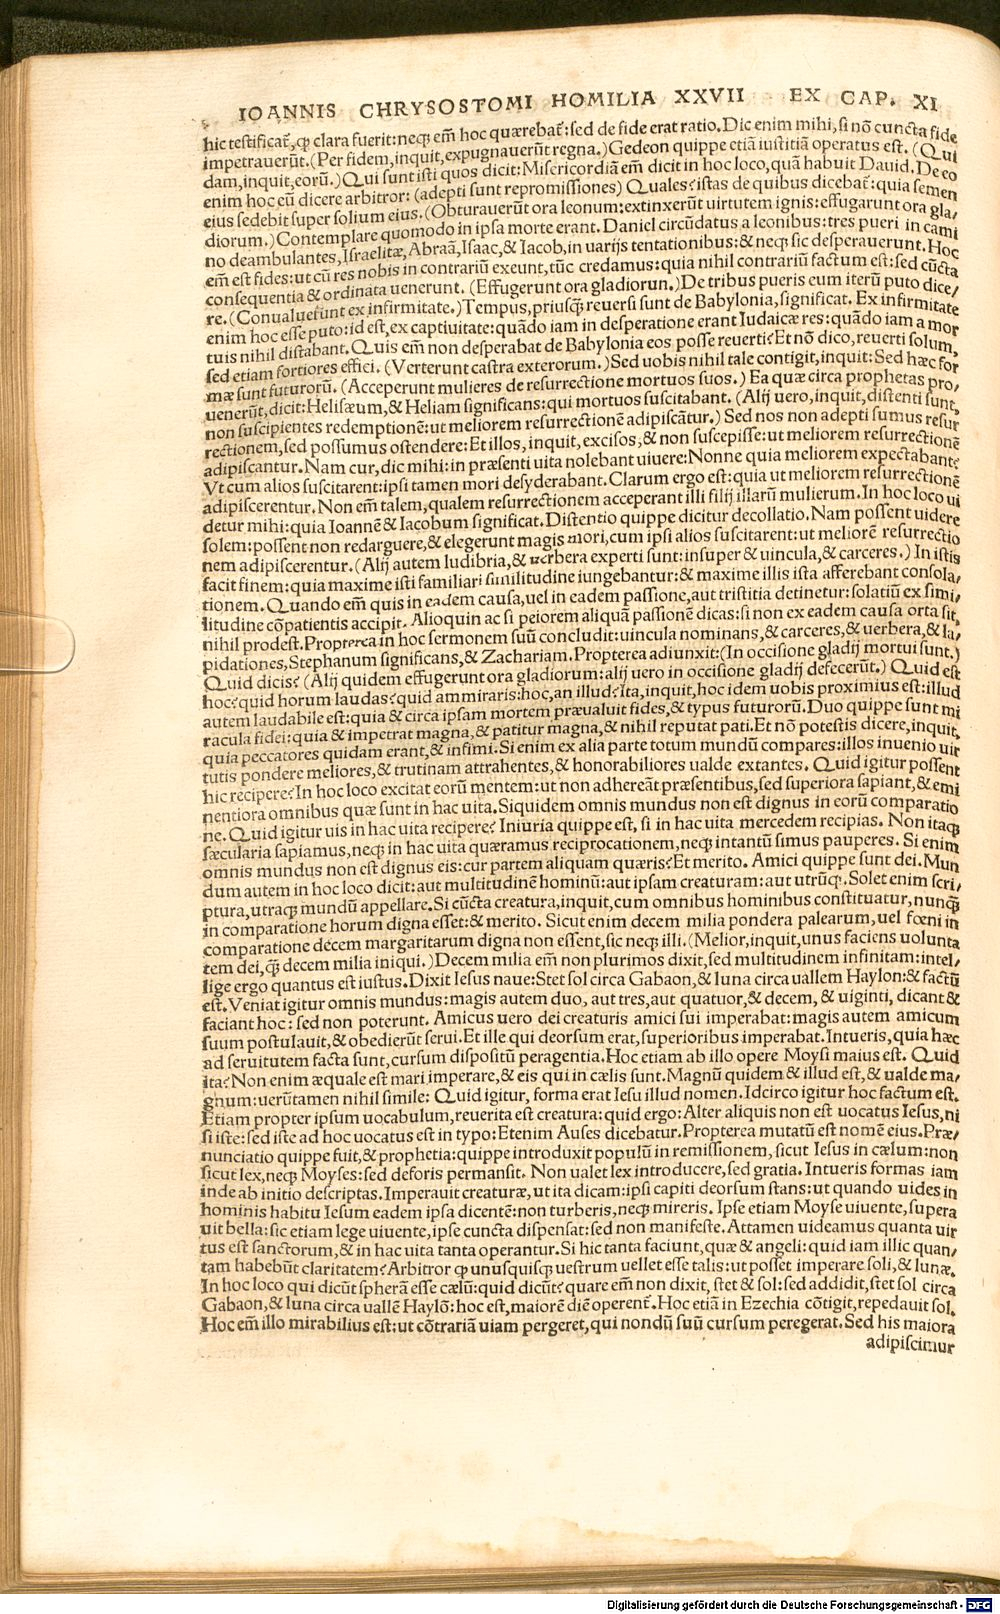 IOANNIS CHRYSOSTOMI HOMILIA XXVII EX CAP. XI
hic testificat̃, ꝙ clara fuerit: neqꝫ em̃ hoc quærebat̃: sed de fide erat ratio. Dic enim mihi, si nõ cuncta fide
impetrauerũt. (Per fidem, inquit, expugnauerũt regna.) Gedeon quippe etiã iustitiã operatus est. (Qui
dam, inquit, eorũ.) Qui sunt isti quos dicit: Misericordiã em̃ dicit in hoc loco, quã habuit Dauid. De eo
enim hoc eũ dicere arbitror: (adepti sunt repromissiones) Quales? istas de quibus dicebat̃: quia semen
eius sedebit super solium eius. (Obturauerũt ora leonum: extinxerũt uirtutem ignis: effugarunt ora gla/
diorum.) Contemplare quomodo in ipsa morte erant. Daniel circũdatus a leonibus: tres pueri in cami
no deambulantes, Israelitæ, Abraã, Isaac, & Iacob, in uarijs tentationibus: & neqꝫ sic desperauerunt. Hoc
em̃ est fides: ut cũ res nobis in contrariũ exeunt, tũc credamus: quia nihil contrariũ factum est: sed cũcta
consequentia & ordinata uenerunt. (Effugerunt ora gladiorun.) De tribus pueris eum iterũ puto dice/
re. (Conualuerunt ex infirmitate.) Tempus, priusq̃ reuersi sunt de Babylonia, significat. Ex infirmitate
enim hoc esse puto: id est, ex captiuitate: quãdo iam in desperatione erant Iudaicæ res: quãdo iam a mor
tuis nihil distabant. Quis em̃ non desperabat de Babylonia eos posse reuerti? Et nõ dico, reuerti solum,
sed etiam fortiores effici. (Verterunt castra exterorum.) Sed uobis nihil tale contigit, inquit: Sed hæc for
mæ sunt futurorũ. (Acceperunt mulieres de resurrectione mortuos suos.) Ea quæ circa prophetas pro/
uenerũt, dicit: Helisæum, & Heliam significans: qui mortuos suscitabant. (Alij uero, inquit, distenti sunt,
non suscipientes redemptionẽ: ut meliorem resurrectionẽ adipiscãtur.) Sed nos non adepti sumus resur
rectionem, sed possumus ostendere: Et illos, inquit, excisos, & non suscepisse: ut meliorem resurrectionẽ
adipiscantur. Nam cur, dic mihi: in præsenti uita nolebant uiuere: Nonne quia meliorem expectabant?
Vt cum alios suscitarent: ipsi tamen mori desyderabant. Clarum ergo est: quia ut meliorem resurrectionẽ
adipiscerentur. Non em̃ talem, qualem resurrectionem acceperant illi filij illarũ mulierum. In hoc loco ui
detur mihi: quia Ioannẽ & Iacobum significat. Distentio quippe dicitur decollatio. Nam possent uidere
solem: possent non redarguere, & elegerunt magis mori, cum ipsi alios suscitarent: ut meliorẽ resurrectio
nem adipiscerentur. (Alij autem ludibria, & uerbera experti sunt: insuper & uincula, & carceres.) In istis
facit finem: quia maxime isti familiari similitudine iungebantur: & maxime illis ista afferebant consola/
tionem. Quando em̃ quis in eadem causa, uel in eadem passione, aut tristitia detinetur: solatiũ ex simi/
litudine cõpatientis accipit. Alioquin ac si peiorem aliquã passionẽ dicas: si non ex eadem causa orta sit,
nihil prodest. Propterea in hoc sermonem suũ concludit: uincula nominans, & carceres, & uerbera, & la/
pidationes, Stephanum significans, & Zachariam. Propterea adiunxit: (In occisione gladij mortui sunt.)
Quid dicis? (Alij quidem effugerunt ora gladiorum: alij uero in occisione gladij defecerũt.) Quid est
hoc? quid horum laudas? quid ammiraris: hoc, an illud? Ita, inquit, hoc idem uobis proximius est: illud
autem laudabile est: quia & circa ipsam mortem præualuit fides, & typus futurorũ. Duo quippe sunt mi
racula fidei: quia & impetrat magna, & patitur magna, & nihil reputat pati. Et nõ potestis dicere, inquit,
quia peccatores quidam erant, & infimi. Si enim ex alia parte totum mundũ compares: illos inuenio uir
tutis pondere meliores, & trutinam attrahentes, & honorabiliores ualde extantes. Quid igitur possent
hic recipere? In hoc loco excitat eorũ mentem: ut non adhereãt præsentibus, sed superiora sapiant, & emi
nentiora omnibus quæ sunt in hac uita. Siquidem omnis mundus non est dignus in eorũ comparatio
ne. Quid igitur uis in hac uita recipere? Iniuria quippe est, si in hac uita mercedem recipias. Non itaqꝫ
sæcularia sapiamus, neqꝫ in hac uita quæramus reciprocationem, neqꝫ intantũ simus pauperes. Si enim
omnis mundus non est dignus eis: cur partem aliquam quæris? Et merito. Amici quippe sunt dei. Mun
dum autem in hoc loco dicit: aut multitudinẽ hominũ: aut ipsam creaturam: aut utrũqꝫ. Solet enim scri/
ptura, utraqꝫ mundũ appellare. Si cũcta creatura, inquit, cum omnibus hominibus constituatur, nunq̃
in comparatione horum digna esset: & merito. Sicut enim decem milia pondera palearum, uel fœni in
comparatione decem margaritarum digna non essent, sic neqꝫ illi. (Melior, inquit, unus faciens uolunta
tem dei, q̃ decem milia iniqui.) Decem milia em̃ non plurimos dixit, sed multitudinem infinitam: intel/
lige ergo quantus est iustus. Dixit Iesus naue: Stet sol circa Gabaon, & luna circa uallem Haylon: & factũ
est. Veniat igitur omnis mundus: magis autem duo, aut tres, aut quatuor, & decem, & uiginti, dicant &
faciant hoc: sed non poterunt. Amicus uero dei creaturis amici sui imperabat: magis autem amicum
suum postulauit, & obedierũt serui. Et ille qui deorsum erat, superioribus imperabat. Intueris, quia hæc
ad seruitutem facta sunt, cursum dispositũ peragentia. Hoc etiam ab illo opere Moysi maius est. Quid
ita? Non enim æquale est mari imperare, & eis qui in cælis sunt. Magnũ quidem & illud est, & ualde ma/
gnum: uerũtamen nihil simile: Quid igitur, forma erat Iesu illud nomen. Idcirco igitur hoc factum est.
Etiam propter ipsum uocabulum, reuerita est creatura: quid ergo: Alter aliquis non est uocatus Iesus, ni
si iste: sed iste ad hoc uocatus est in typo: Etenim Auses dicebatur. Propterea mutatũ est nomẽ eius. Præ/
nunciatio quippe fuit, & prophetia: quippe introduxit populũ in remissionem, sicut Iesus in cælum: non
sicut lex, neqꝫ Moyses: sed deforis permansit. Non ualet lex introducere, sed gratia. Intueris formas iam
inde ab initio descriptas. Imperauit creaturæ, ut ita dicam: ipsi capiti deorsum stans: ut quando uides in
hominis habitu Iesum eadem ipsa dicentẽ: non turberis, neqꝫ mireris. Ipse etiam Moyse uiuente, supera
uit bella: sic etiam lege uiuente, ipse cuncta dispensat: sed non manifeste. Attamen uideamus quanta uir
tus est sanctorum, & in hac uita tanta operantur. Si hic tanta faciunt, quæ & angeli: quid iam illic quan/
tam habebũt claritatem? Arbitror ꝙ unusquisqꝫ uestrum uellet esse talis: ut posset imperare soli, & lunæ.
In hoc loco qui dicũt spherã esse cælũ: quid dicũt? quare em̃ non dixit, stet & sol: sed addidit, stet sol circa
Gabaon, & luna circa uallẽ Haylõ: hoc est, maiorẽ diẽ operent̃. Hoc etiã in Ezechia cõtigit, repedauit sol.
Hoc em̃ illo mirabilius est: ut cõtrariã uiam pergeret, qui nondũ suũ cursum peregerat. Sed his maiora
adipiscimur
Digitalisierung gefördert durch die Deutsche Forschungsgemeinschaft - DFG